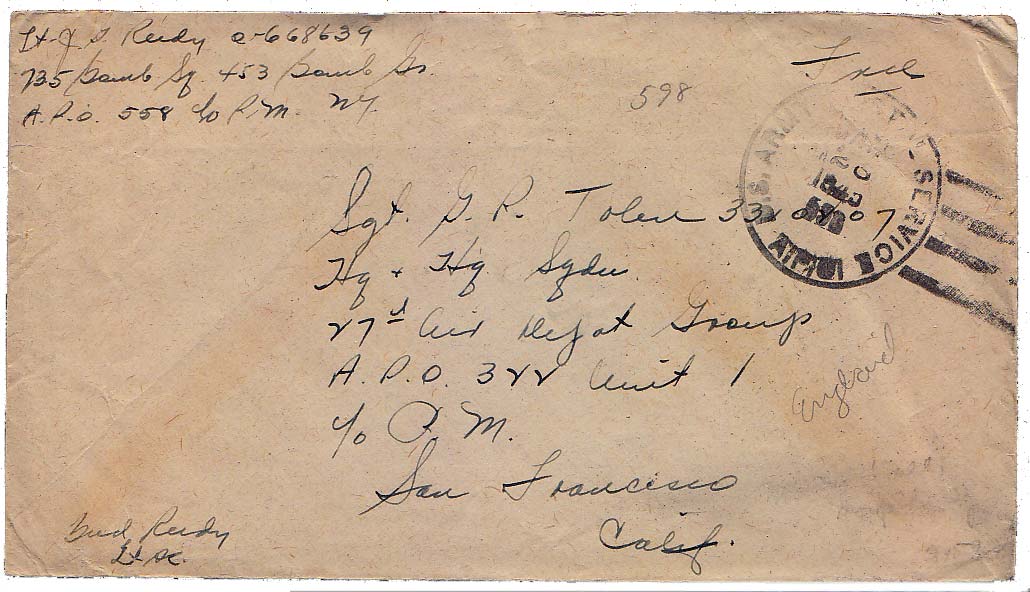 Lt. J. S. Reedy O-668639
735 Bomb Sq. 453 Bomb Gr.
A.P.O. 558 c/o P.M. NY.
Free
598
U.S. ARMY SERVICE
1943
Sgt. G. R.
Hq + Hq Sqdn
27th Air Depot Group
A.P.O. 322 Unit 1
c/o P.M.
San Francisco
Calif.
England
Bud Reedy
Lt AC.